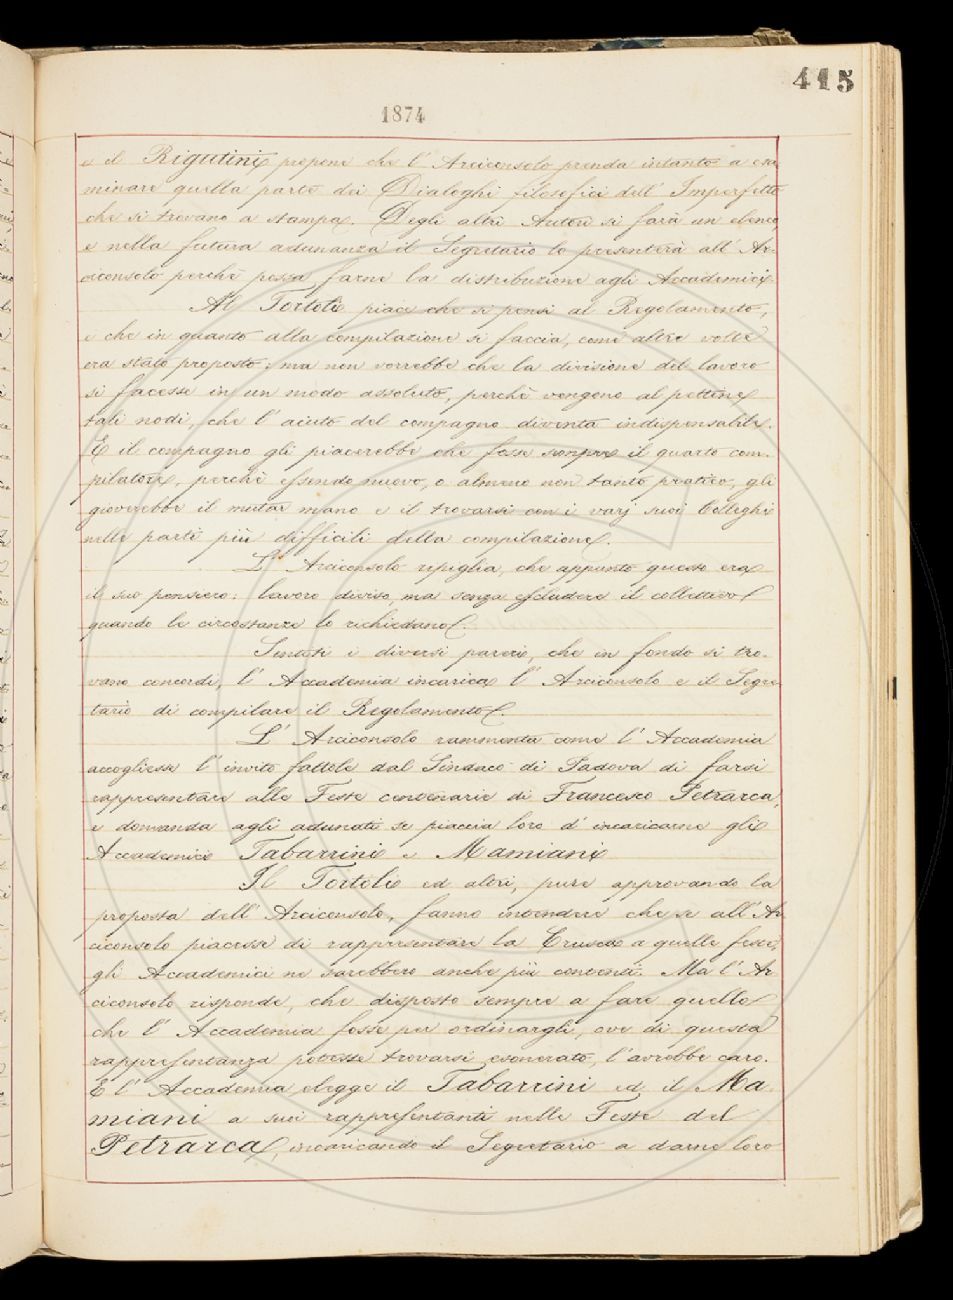 415
1874
e il Rigutini propone che l'Arciconsolo prenda intanto a esa
minare quella parte dei Dialoghi filosofici dell'Imperfetto
che si trovano a stampa. Degli altri Autori si farà un elenco,
e nella futura adunanza il Segretario lo presenterà all'Ar-
ciconsolo perchè possa farne la distribuzione agli Accademici.
Al Tortoli piace che si pensi al Regolamento,
e che in quanto alla compilazione si faccia, come altre volte
era stato proposto; ma non vorrebbe che la divisione del lavoro
si facesse in un modo assoluto, perchè vengono al pettine
tali nodi, che l'aiuto del compagno diventa indispensabile.
E il compagno gli piacerebbe che fosse sempre il quarto com-
pilatore, perchè essendo nuovo, o almeno non tanto pratico, gli
gioverebbe il mutar mano e il trovarsi con i varj suoi Colleghi
nelle parti più difficili della compilazione.
L'Arciconsolo ripiglia, che appunto questo era
il suo pensiero: lavoro diviso, ma senza escludere il collettivo
quando le circostanze lo richiedano.
Sentiti i diversi pareri, che in fondo si tro-
vano concordi, l'Accademia incarica l'Arciconsolo e il Segre-
tario di compilare il Regolamento.
L'Arciconsolo rammenta come l'Accademia
accogliesse l'invito fattole dal Sindaco di Padova di farsi
rappresentare alle Feste centenarie di Francesco Petrarca,
e domanda agli adunati se piaccia loro d'incaricarne gli
Accademici Tabarrini e Mamiani
Il Tortoli ed altri, pure approvando la
proposta dell'Arciconsolo, fanno intendere che se all'Ar
ciconsolo piacesse di rappresentare la Crusca a quelle feste,
gli Accademici ne sarebbero anche più contenti. Ma l'Ar
ciconsolo risponde, che disposto sempre a fare quello
che l'Accademia fosse per ordinargli, ove di questa
rappresentanza potesse trovarsi esonerato, l'avrebbe caro.
E l'Accademia elegge il Tabarrini ed il Ma
miani a suoi rappresentanti nelle Feste del
Petrarca, incaricando il Segretario a darne loro